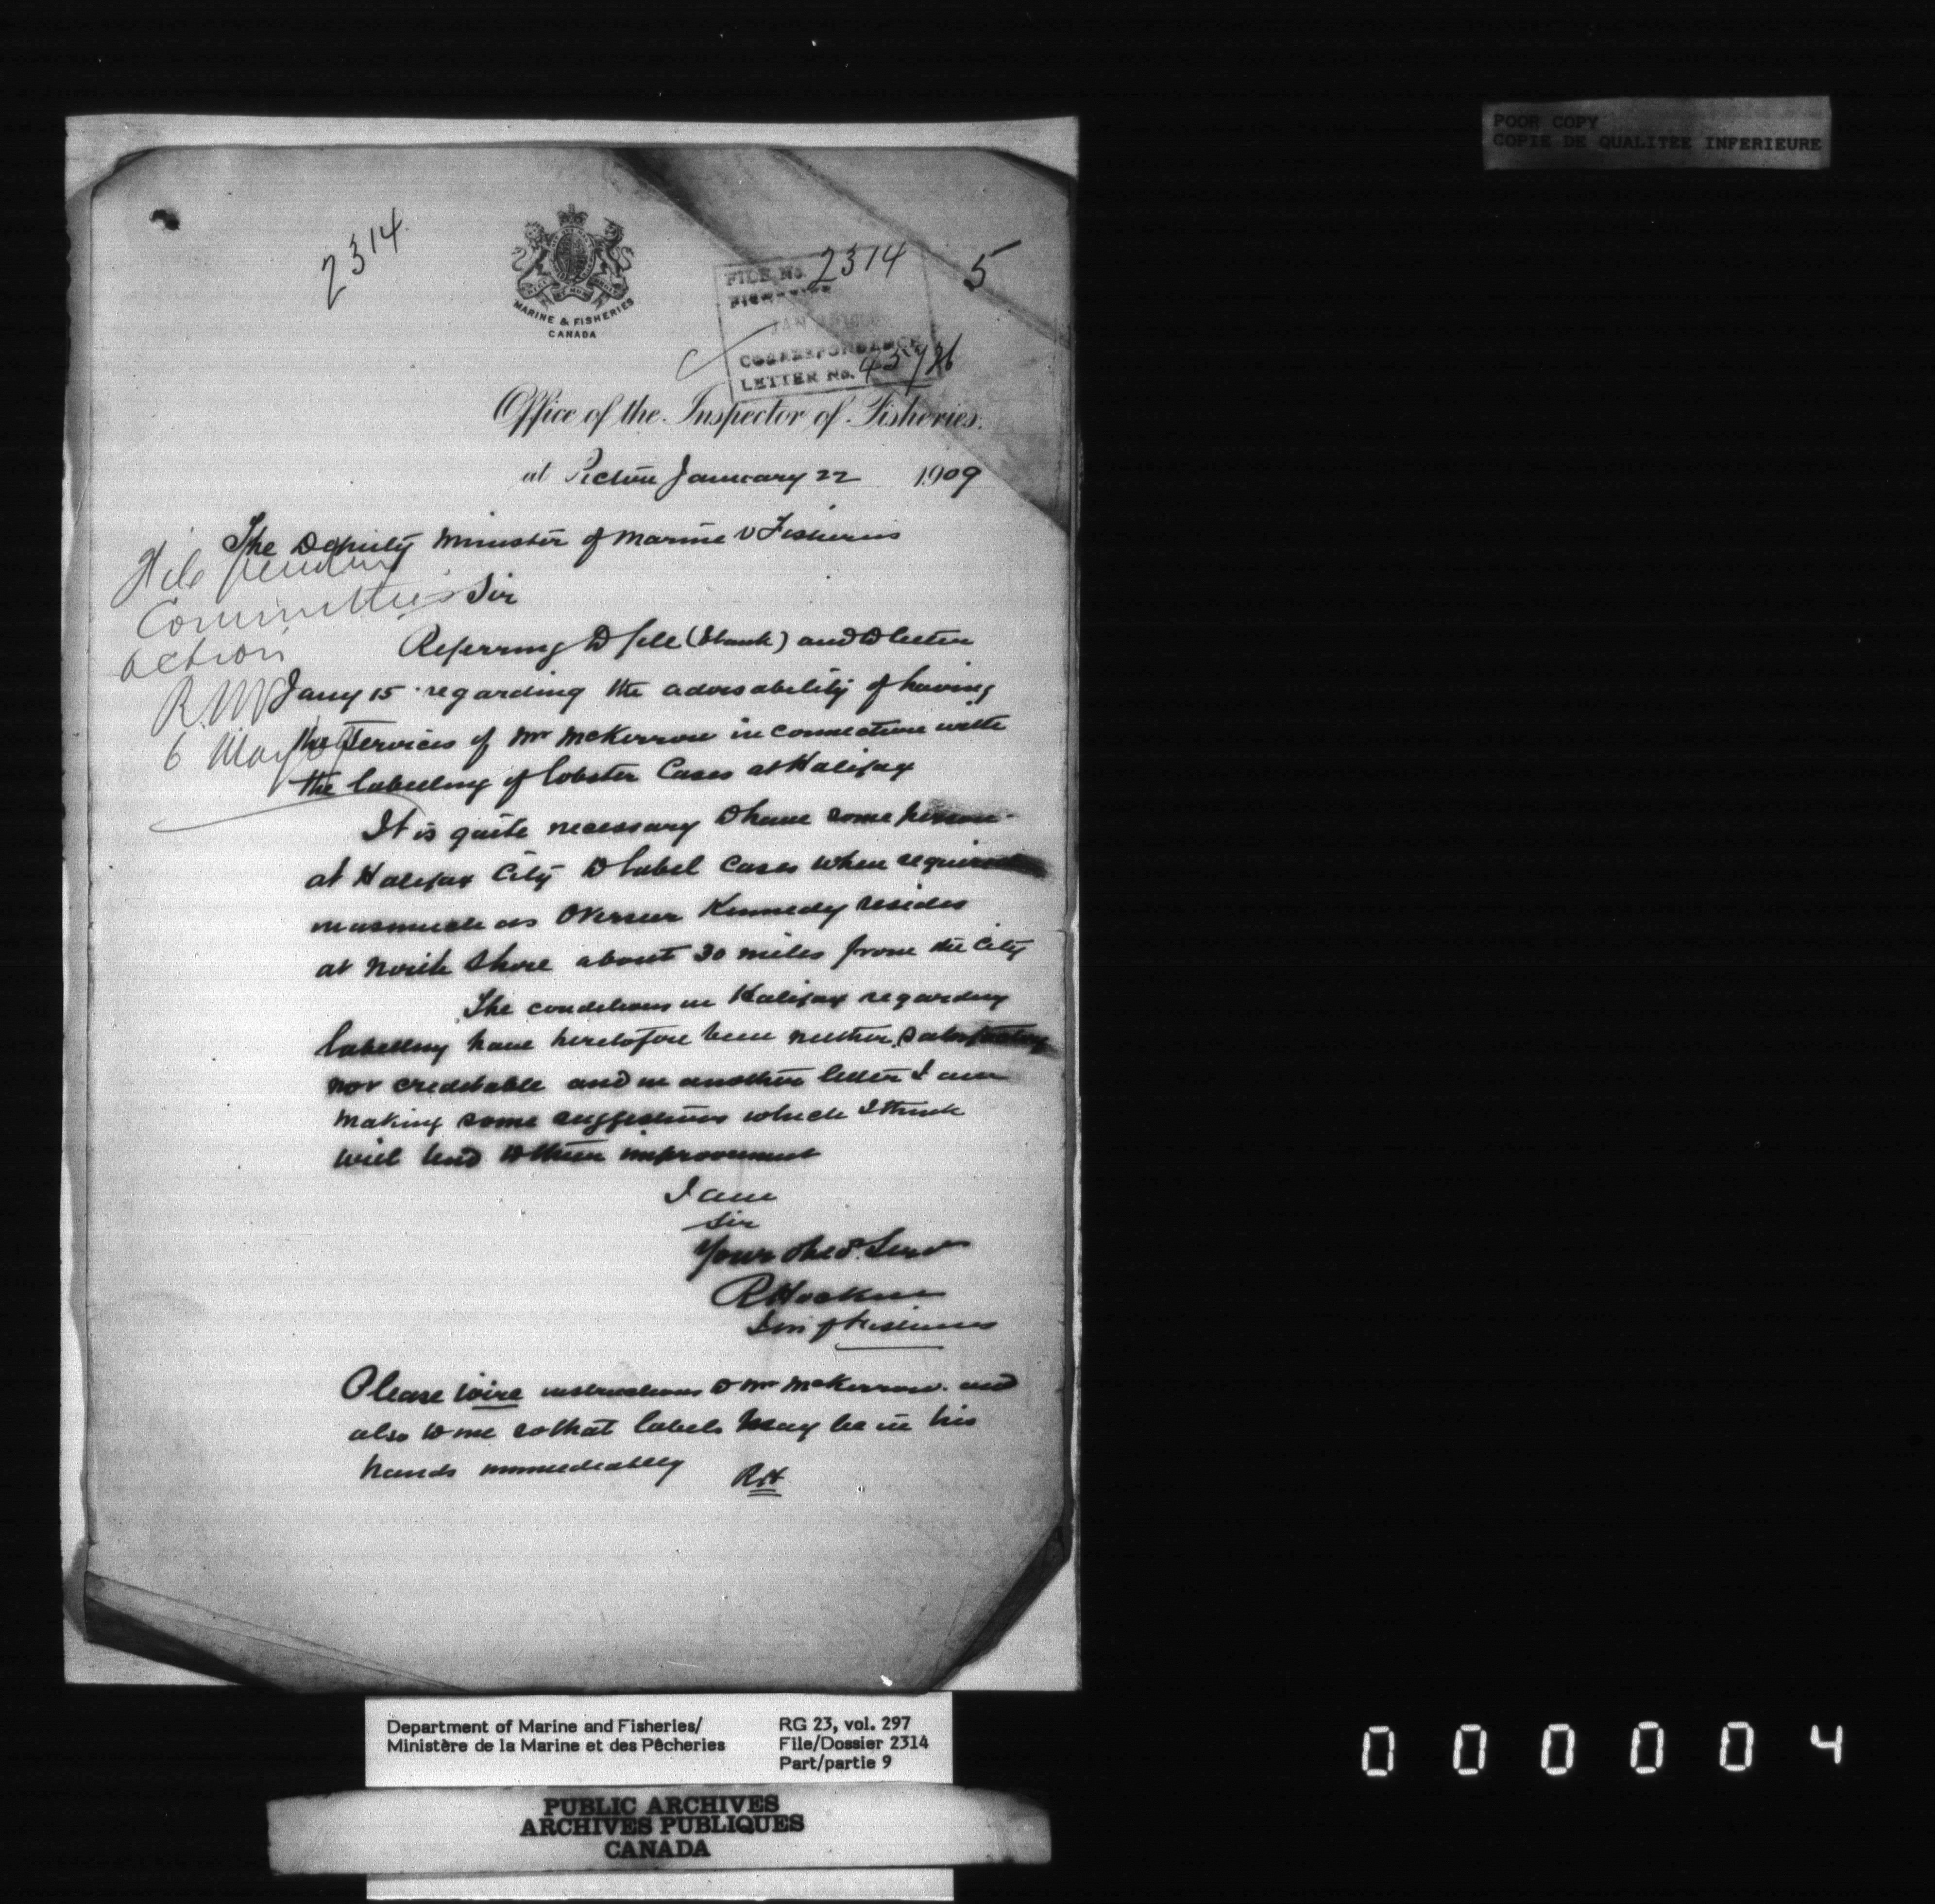 POOR COPY
COPIE DE QUALITEE INFERIEURE
2314
MARINE & FISHERIES
CANADA
FILE No. 2314
5
CORRESPONDENCE
LETTER No.
Office of the Inspector of Fisheries.
at Pictou January 22 1909
The Deputy Minister of Marine & Fisheries
File pending
Committee's
action
6 May
Sir
Referring to file (blank) and to letter
Jany 15 regarding the advisability of having
the services of Mr McKerron in connection with
the labelling of lobster Cases at Halifax
It is quite necessary to have some person
at Halifax City to label Cases when required
inasmuch as Overseer Kennedy resides
at North Shore about 30 miles from the City
The conditions in Halifax regarding
labelling have heretofore been neither satisfactory
nor creditable and in another letter I am
making some suggestions which I think
will tend to their improvement
I am
Sir
Your obed. Servt
R Hockin
Ins of Fisheries
Please wire instructions to Mr McKerron and
also to me so that labels may be in his
hands immediately RH
Department of Marine and Fisheries/
Ministère de la Marine et des Pêcheries
RG 23, vol. 297
File/Dossier 2314
Part/partie 9
PUBLIC ARCHIVES
ARCHIVES PUBLIQUES
CANADA
000004